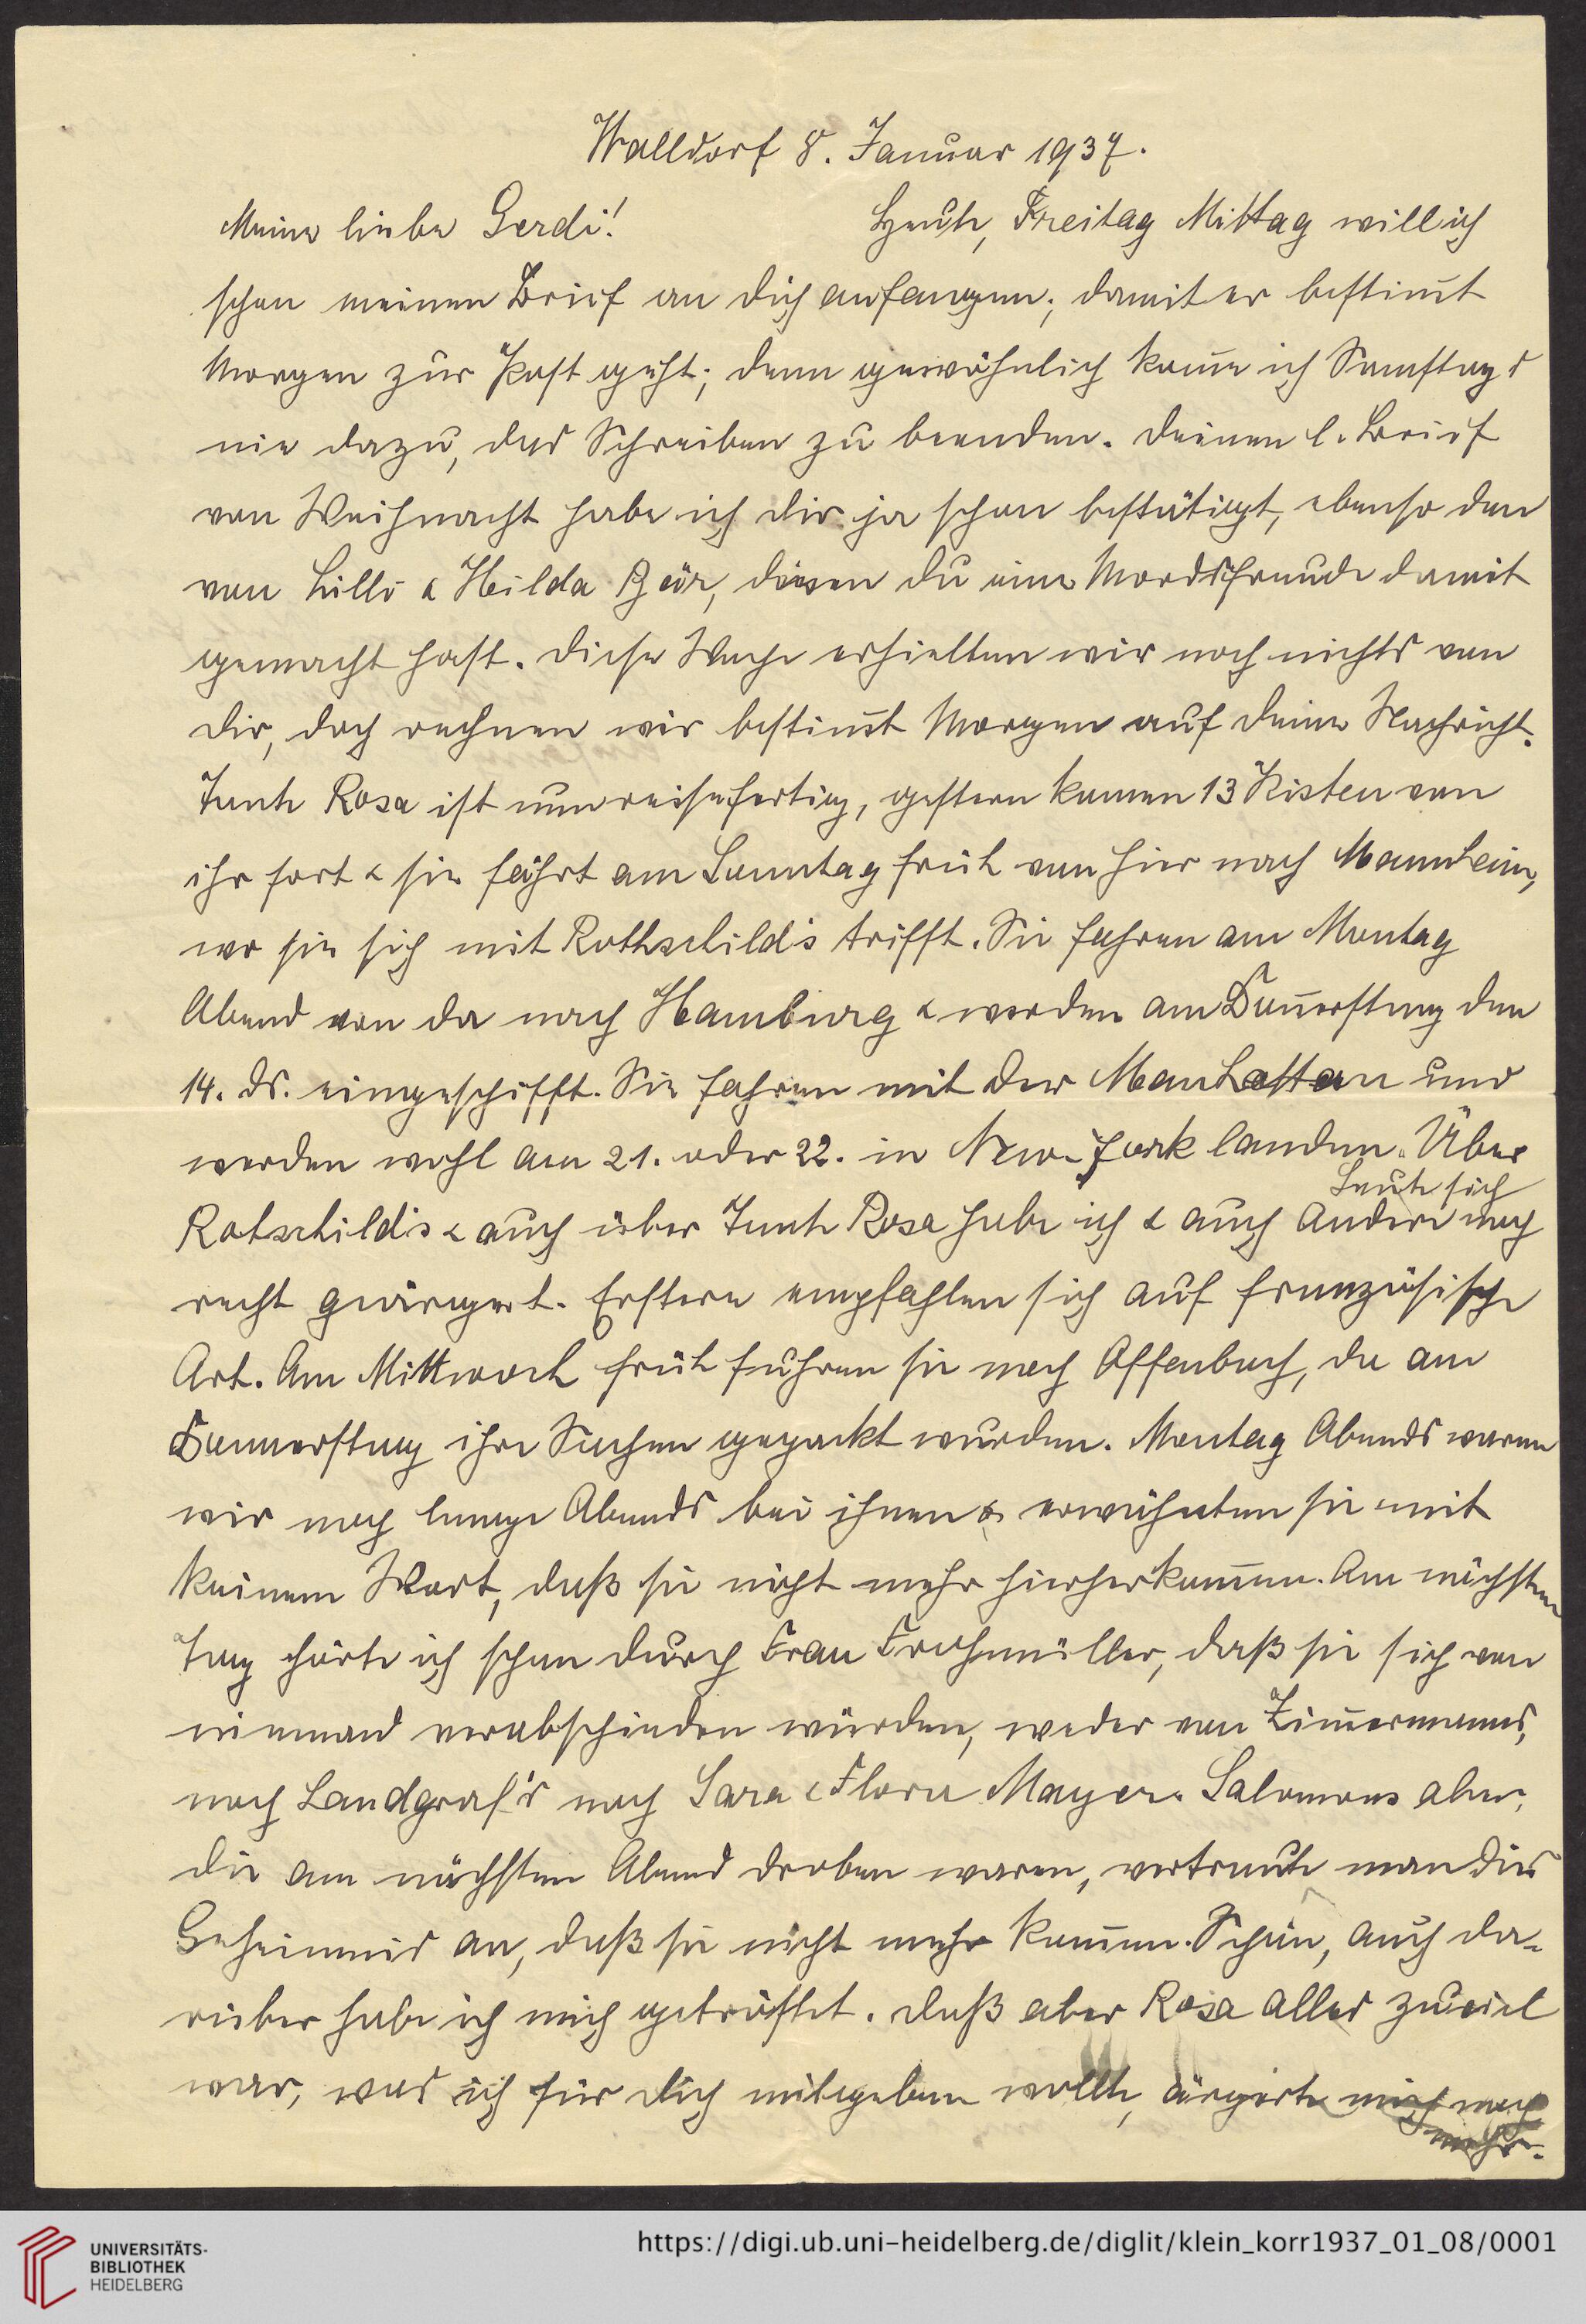 Walldorf 8. Januar 1937.
Meine liebe Gerdi! Heute, Freitag Mittag will ich
schon meinen Brief an Dich anfangen, damit er bestim̄t
Morgen zur Post geht; denn gewöhnlich kom̄e ich Samstags
nie dazu, das Schreiben zu beenden. Deinen l. Brief
von Weihnacht habe ich dir ja schon bestätigt, ebenso den
von Lilli & Hilda Bär, denen du eine Mordsfreude damit
gemacht hast. Diese Woche erhielten wir noch nichts von
dir, doch rechnen wir bestim̄t Morgen auf deine Nachricht.
Tante Rosa ist nun reisefertig, gestern kamen 13 Kisten von
ihr fort & sie fährt am Sonntag früh von hier nach Mannheim,
wo sie sich mit Rothschild's trifft. Sie fahren am Montag
Abend von da nach Hamburg & werden am Don̄erstag den
14. ds. eingeschifft. Sie fahren mit der Manhattan und
werden wohl am 21. oder 22. in New-York landen. Über
Leute sich
Rotschild's & auch über Tante Rosa habe ich & auch Andere noch
recht geärgert. Erstere empfahlen sich auf französische
Art. Am Mittwoch früh fuhren sie nach Offenbach, da am
Donnerstag ihre Sachen gepackt wurden. Montag Abends waren
wir noch lange Abends bei ihnen & erwähnten sie mit
keinem Wort, daß sie nicht mehr hierherkom̄en. Am nächsten
Tag hörte ich schon durch Frau Frohmüller, daß sie sich von
niemand verabschieden würden, weder von Zim̄ermanns,
noch Landgraf's noch Sara & Flora Mayer. Salomons aber,
die am nächsten Abend droben waren, vertraute man dies
Geheimnis an, daß sie nicht mehr kom̄en. Schön, auch da-
rüber habe ich mich getröstet. Daß aber Rosa alles zuviel
war, was ich für dich mitgeben wollte, ärgerte mich noch
mehr.
UNIVERSITÄTS-
BIBLIOTHEK
HEIDELBERG
https://digi.ub.uni-heidelberg.de/diglit/klein_korr1937_01_08/0001